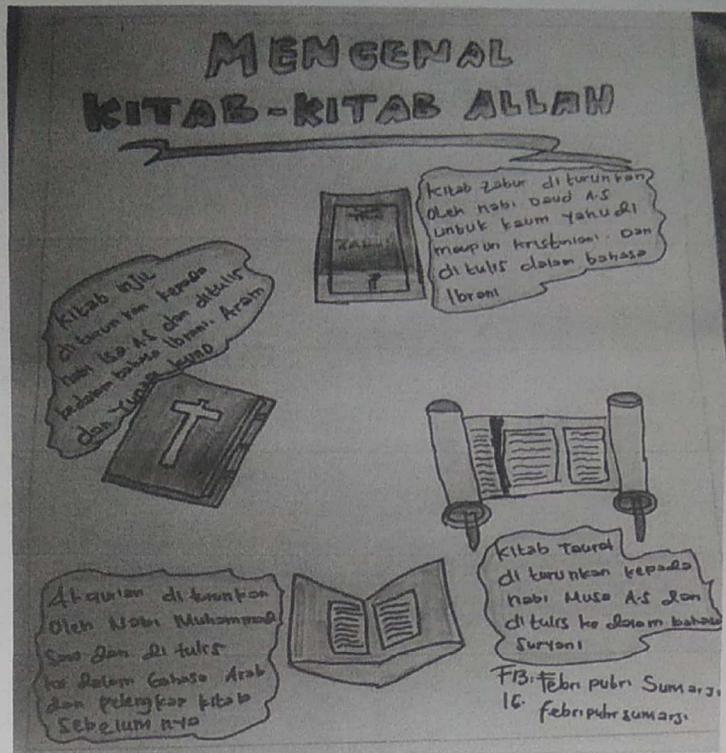 MENGENAL
KITAB-KITAB ALLAH
Kitab Zabur di turunkan
Oleh nabi Daud A.S
untuk kaum yahudi
maupun kristiniani. Dan
di tulis dalam bahasa
Ibrani
ZABUR
Kitab INJIL
di turun kan kepada
nabi Isa A.S dan ditulis
kedalam bahasa Ibrani. Aram
dan Yunani kuno
Kitab Taurat
di turunkan kepada
nabi Musa A.S dan
di tulis ke dalam bahasa
Suryani
Al qur'an di turunkan
Oleh Nabi Muhammad
Saw dan di tulis
ke dalam bahasa Arab
dan pelengkap kitab
Sebelum nya
FB: Febri putri Sumarji
IG. febriputrisumarji